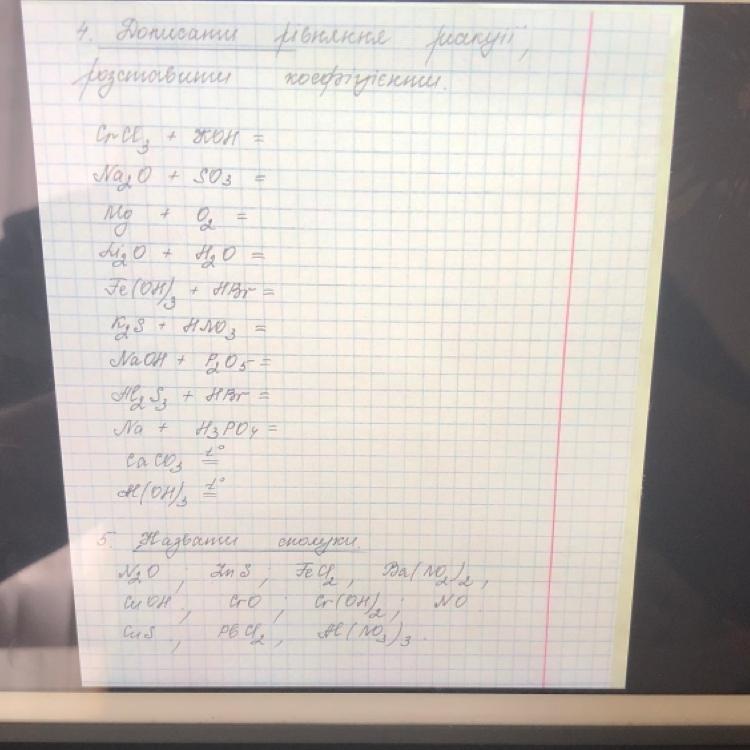 4. Дописати рівняння реакції,
розставити коефіцієнти.
CrCl₃ + KOH =
Na₂O + SO₃ =
Mg + O₂ =
Li₂O + H₂O =
Fe(OH)₃ + HBr =
K₂S + HNO₃ =
NaOH + P₂O₅ =
Al₂S₃ + HBr =
Na + H₃PO₄ =
CaCO₃ t° =
Al(OH)₃ t° =
5. Назвати сполуки.
N₂O ; ZnS ; FeCl₂ , Ba(NO₂)₂ ,
CuOH , CrO ; Cr(OH)₂ ; NO
CuS , PbCl₂ , Al(NO₃)₃ .